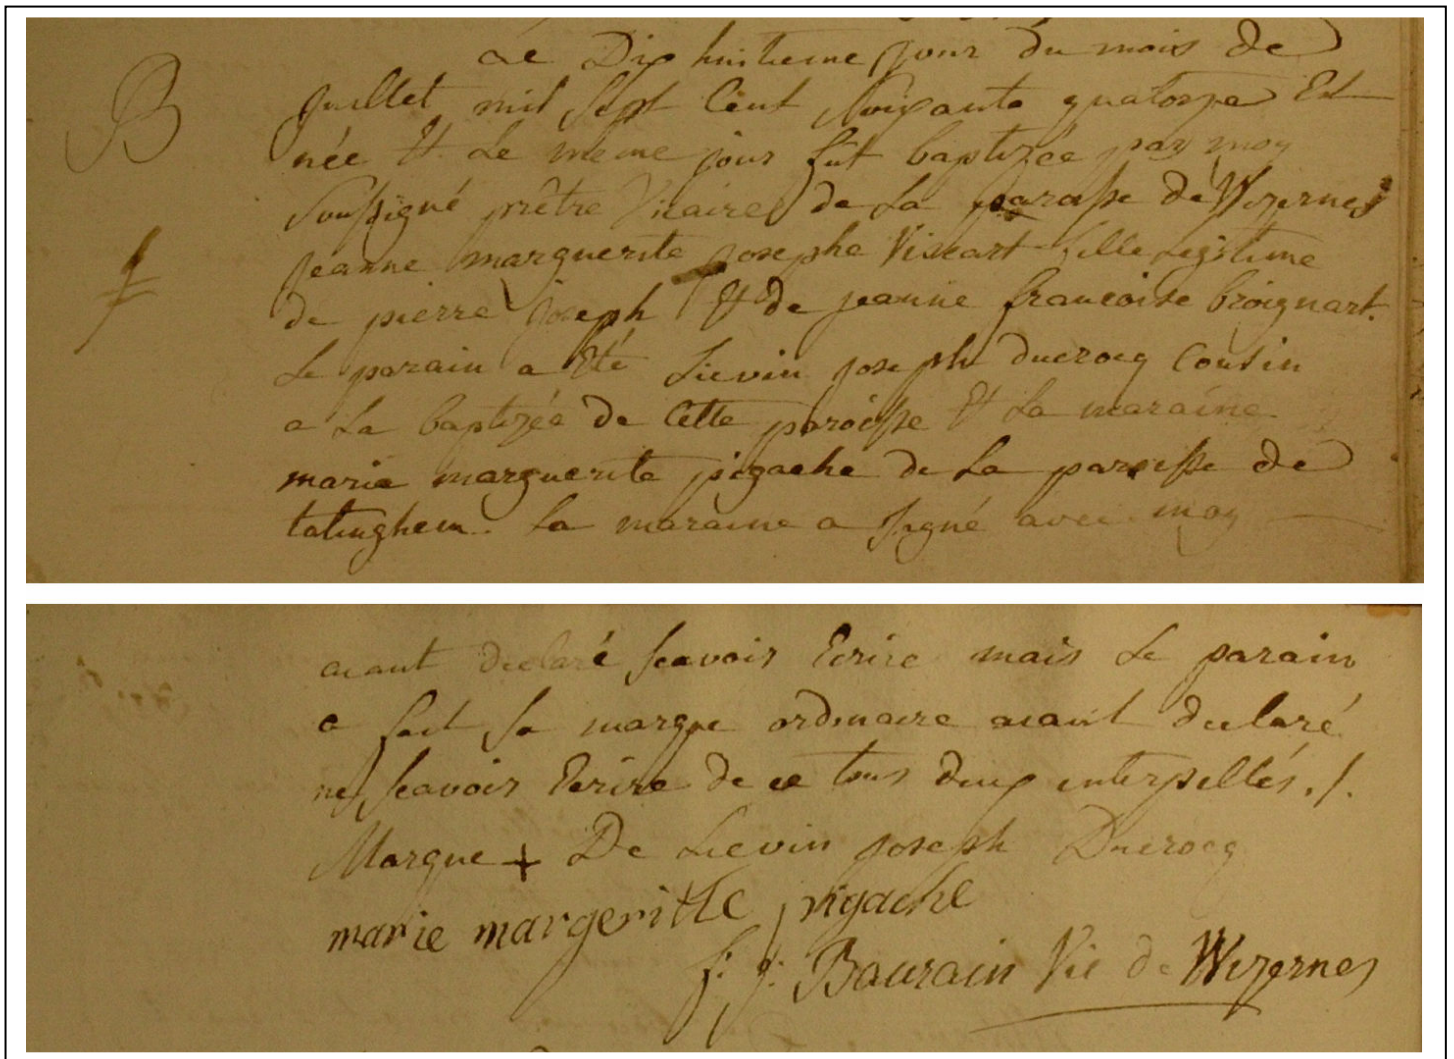 Le Dix huitieme jour du mois de
B
juillet mil sept Cent Soixante quatorze Est
née Et Le meme jour fut baptizée par moy
Soussigné prêtre Vicaire de La paroisse de Wizernes
jeanne marguerite josephe Viseart fille Legitime
de pierre joseph Et de jeanne francoise broignart.
Le parain a Eté Lievin joseph ducrocq Cousin
a La baptizée de Cette paroisse Et La maraine
marie marguerite pigache de La paroisse de
tatinghem. La maraine a signé avec moy
aiant declaré scavoir Ecrire mais Le parain
a fait sa marque ordinaire aiant declaré
ne scavoir Ecrire de ce tous deux interpellés ./.
Marque + De Lievin joseph Ducrocq
marie margeritte pigache
f: j: Baurain Vic de Wizernes